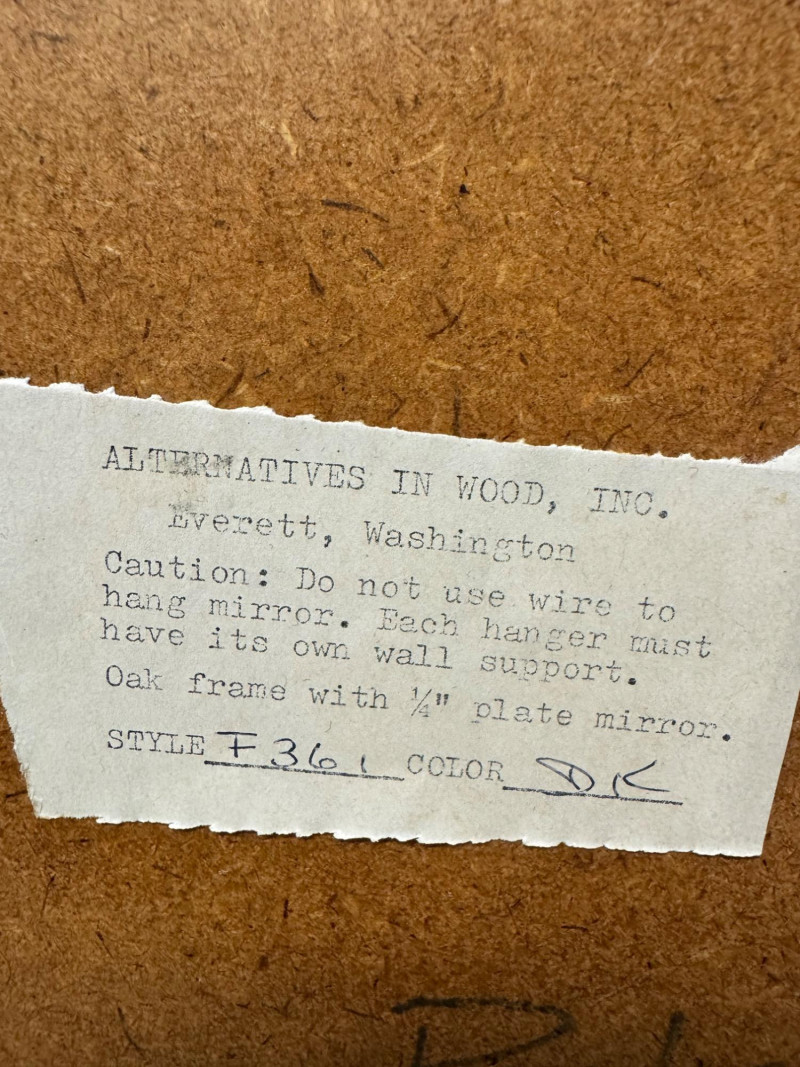 ALTERNATIVES IN WOOD, INC.
Everett, Washington
Caution: Do not use wire to
hang mirror. Each hanger must
have its own wall support.
Oak frame with ¼" plate mirror.
STYLE F361 COLOR DK